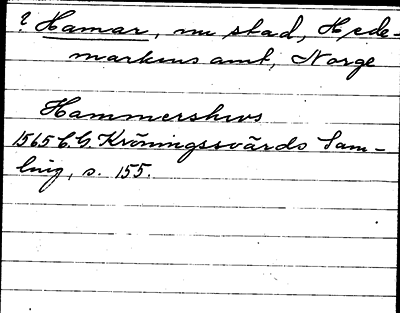 ? Hamar, nu stad, Hede-
markens amt, Norge
Hammershws
1565 C. G. Kröningssvärds Sam-
ling, s. 155.